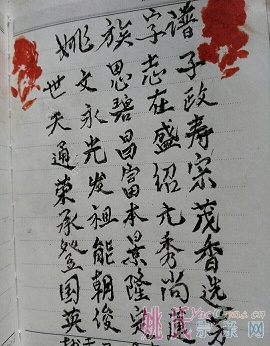 姚族字谱
子政寿宗茂香选
志在盛绍元秀尚
思碧昌富本景隆
文永光发祖能朝俊
世天通荣承登国英
姚氏宗亲网